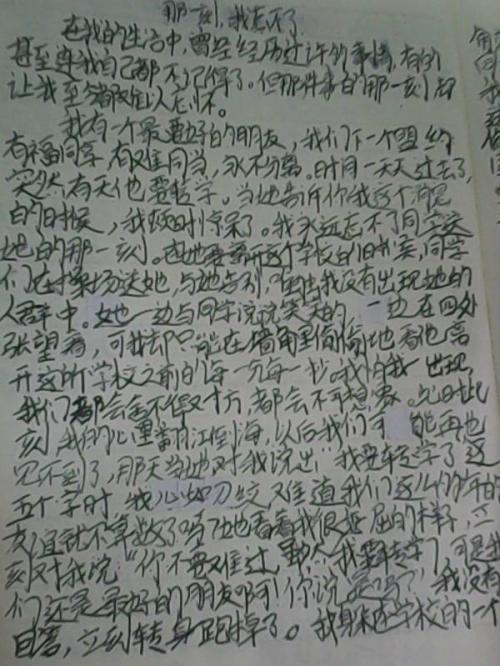 那一刻,我忘不了
在我的生活中,曾经经历过许多事情,有的
甚至连我自己都不记得了。但那件事的那一刻却
让我至今都难以忘怀。
我有一个最要好的朋友,我们下一个盟约
有福同享有难同当,永不分离。时间一天天过去了,
突然有天他要转学。当她告诉你我这个消息
的时候,我顿时惊呆了。我永远忘不了同学送
她的那一刻。在她要离开这个学校的时候,同学
们在操场送她,与她告别,唯独我没有出现她的
人群中。她一边与同学说说笑笑的,一边在四处
张望着,可我却只能在墙角里偷偷地看他离
开这所学校之前的每一分每一秒。我怕我一出现,
我们都会舍不得对方,都会不可想象。此时此
刻我的心里翻江倒海,以后我们可能再也
见不到了,那天当她对我说出“我要转学了”这
五个字时我心如刀绞难道我们这么多年的
友谊就不算数了吗?她看着我很委屈的样子,立
刻对我说“你不要难过,虽然我要转学了,可是我
们还是最好的朋友啊!你说是吗?”我没有
回答,立刻转身跑掉了。我躲在学校的一个